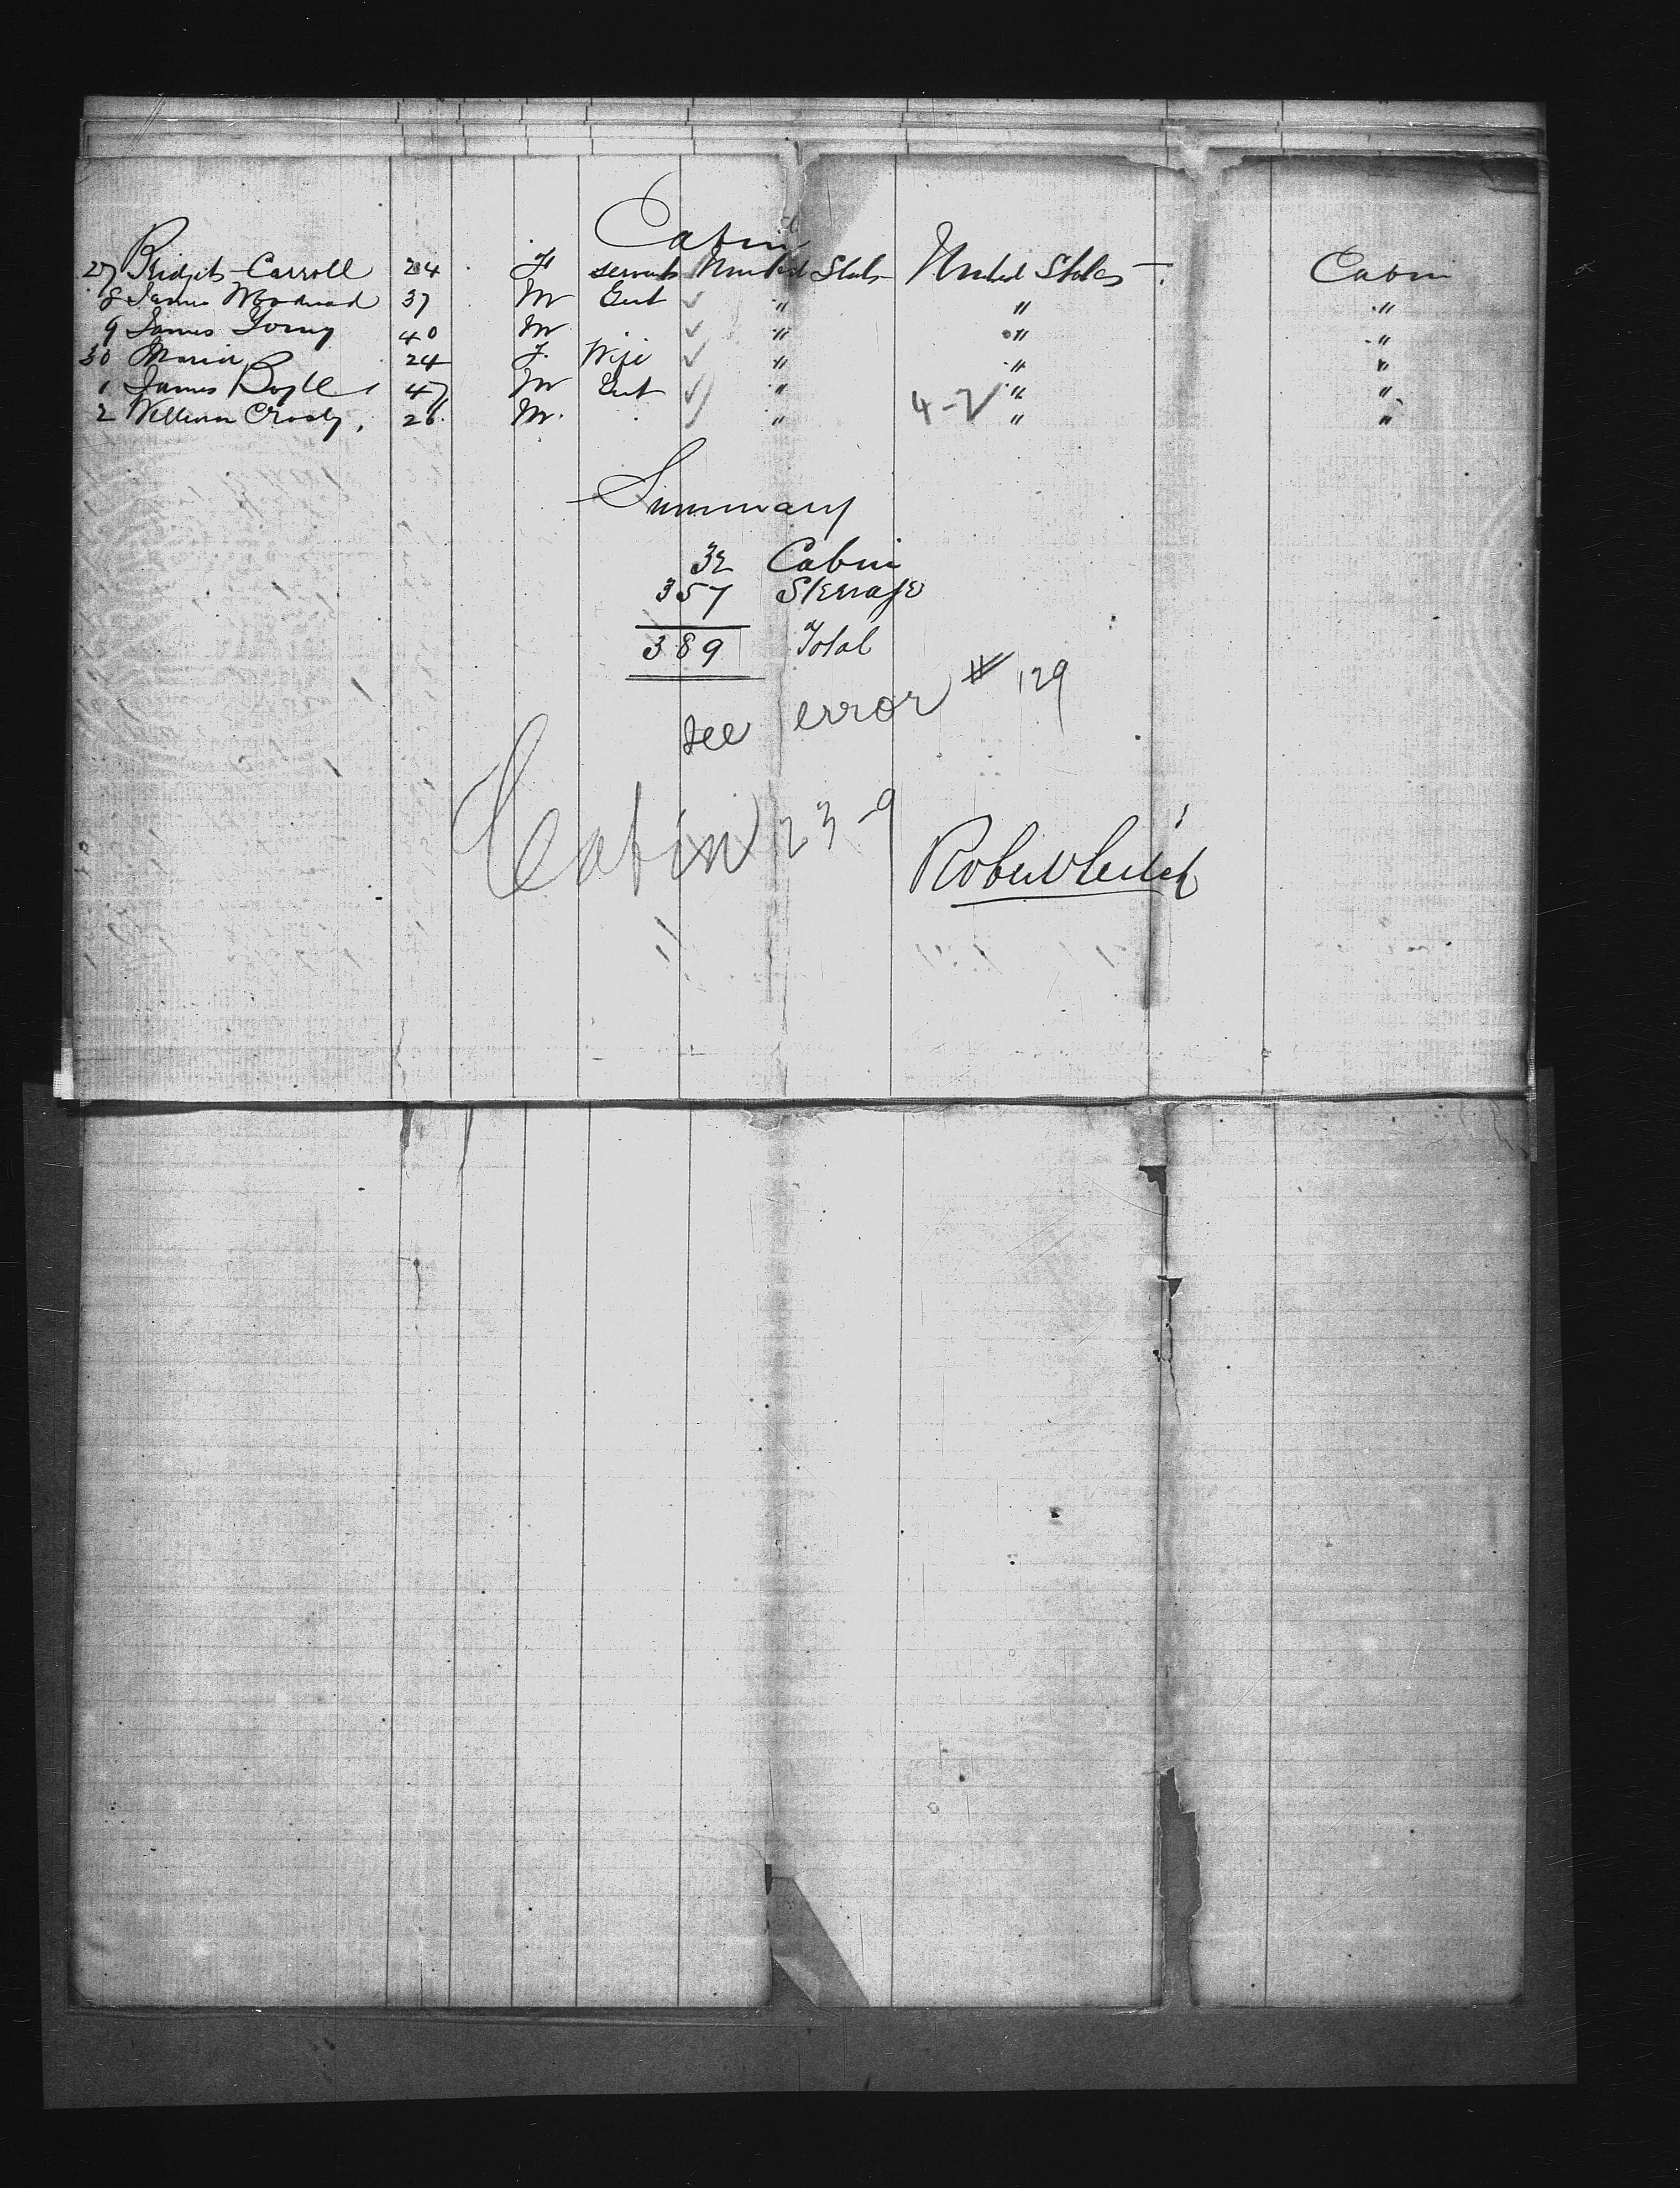 Cabin
27 Bridget Carroll 24 F Servant United States United States — Cabin
8 James Woodward 37 M Gent " " "
9 James 40 M " " "
30 Maria 24 F. Wife " " "
1 James Boyle 47 M Gent " " "
2 William Crosby, 26 M. " 4-2 " "
Summary
32 Cabin
357 Sterrage
389 Total
see error # 129
Cabin 23-9
Robert Leitch